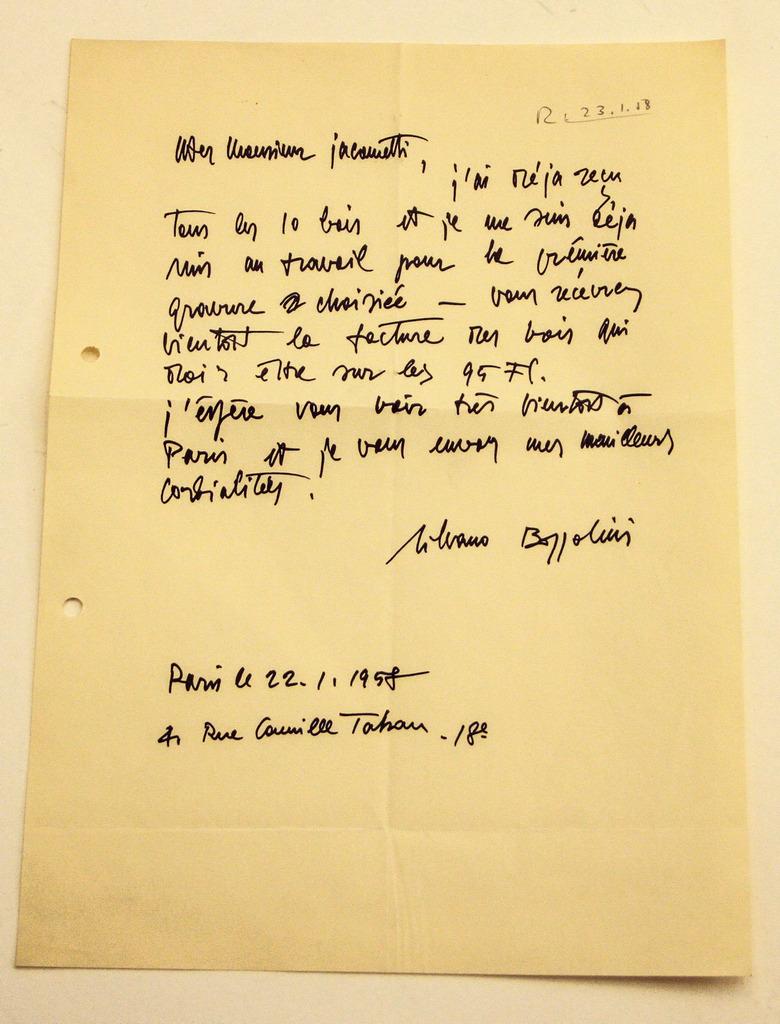 R. 23.1.58
Cher Monsieur jacometti,
j'ai déja reçu
Tous les 10 bois et je me suis déja
mis au travail pour la prémière
gravure choisiée — vous récévrez
bientôst la facture des bois qui
doit être sur les 95 Fl.
j'éspère vous voir très bientôst à
Paris et je vous envoy mes meilleurs
cordialités.
Silvano Bozzolini
Paris le 22.1.1958
4, Rue Camille Tahan - 18e